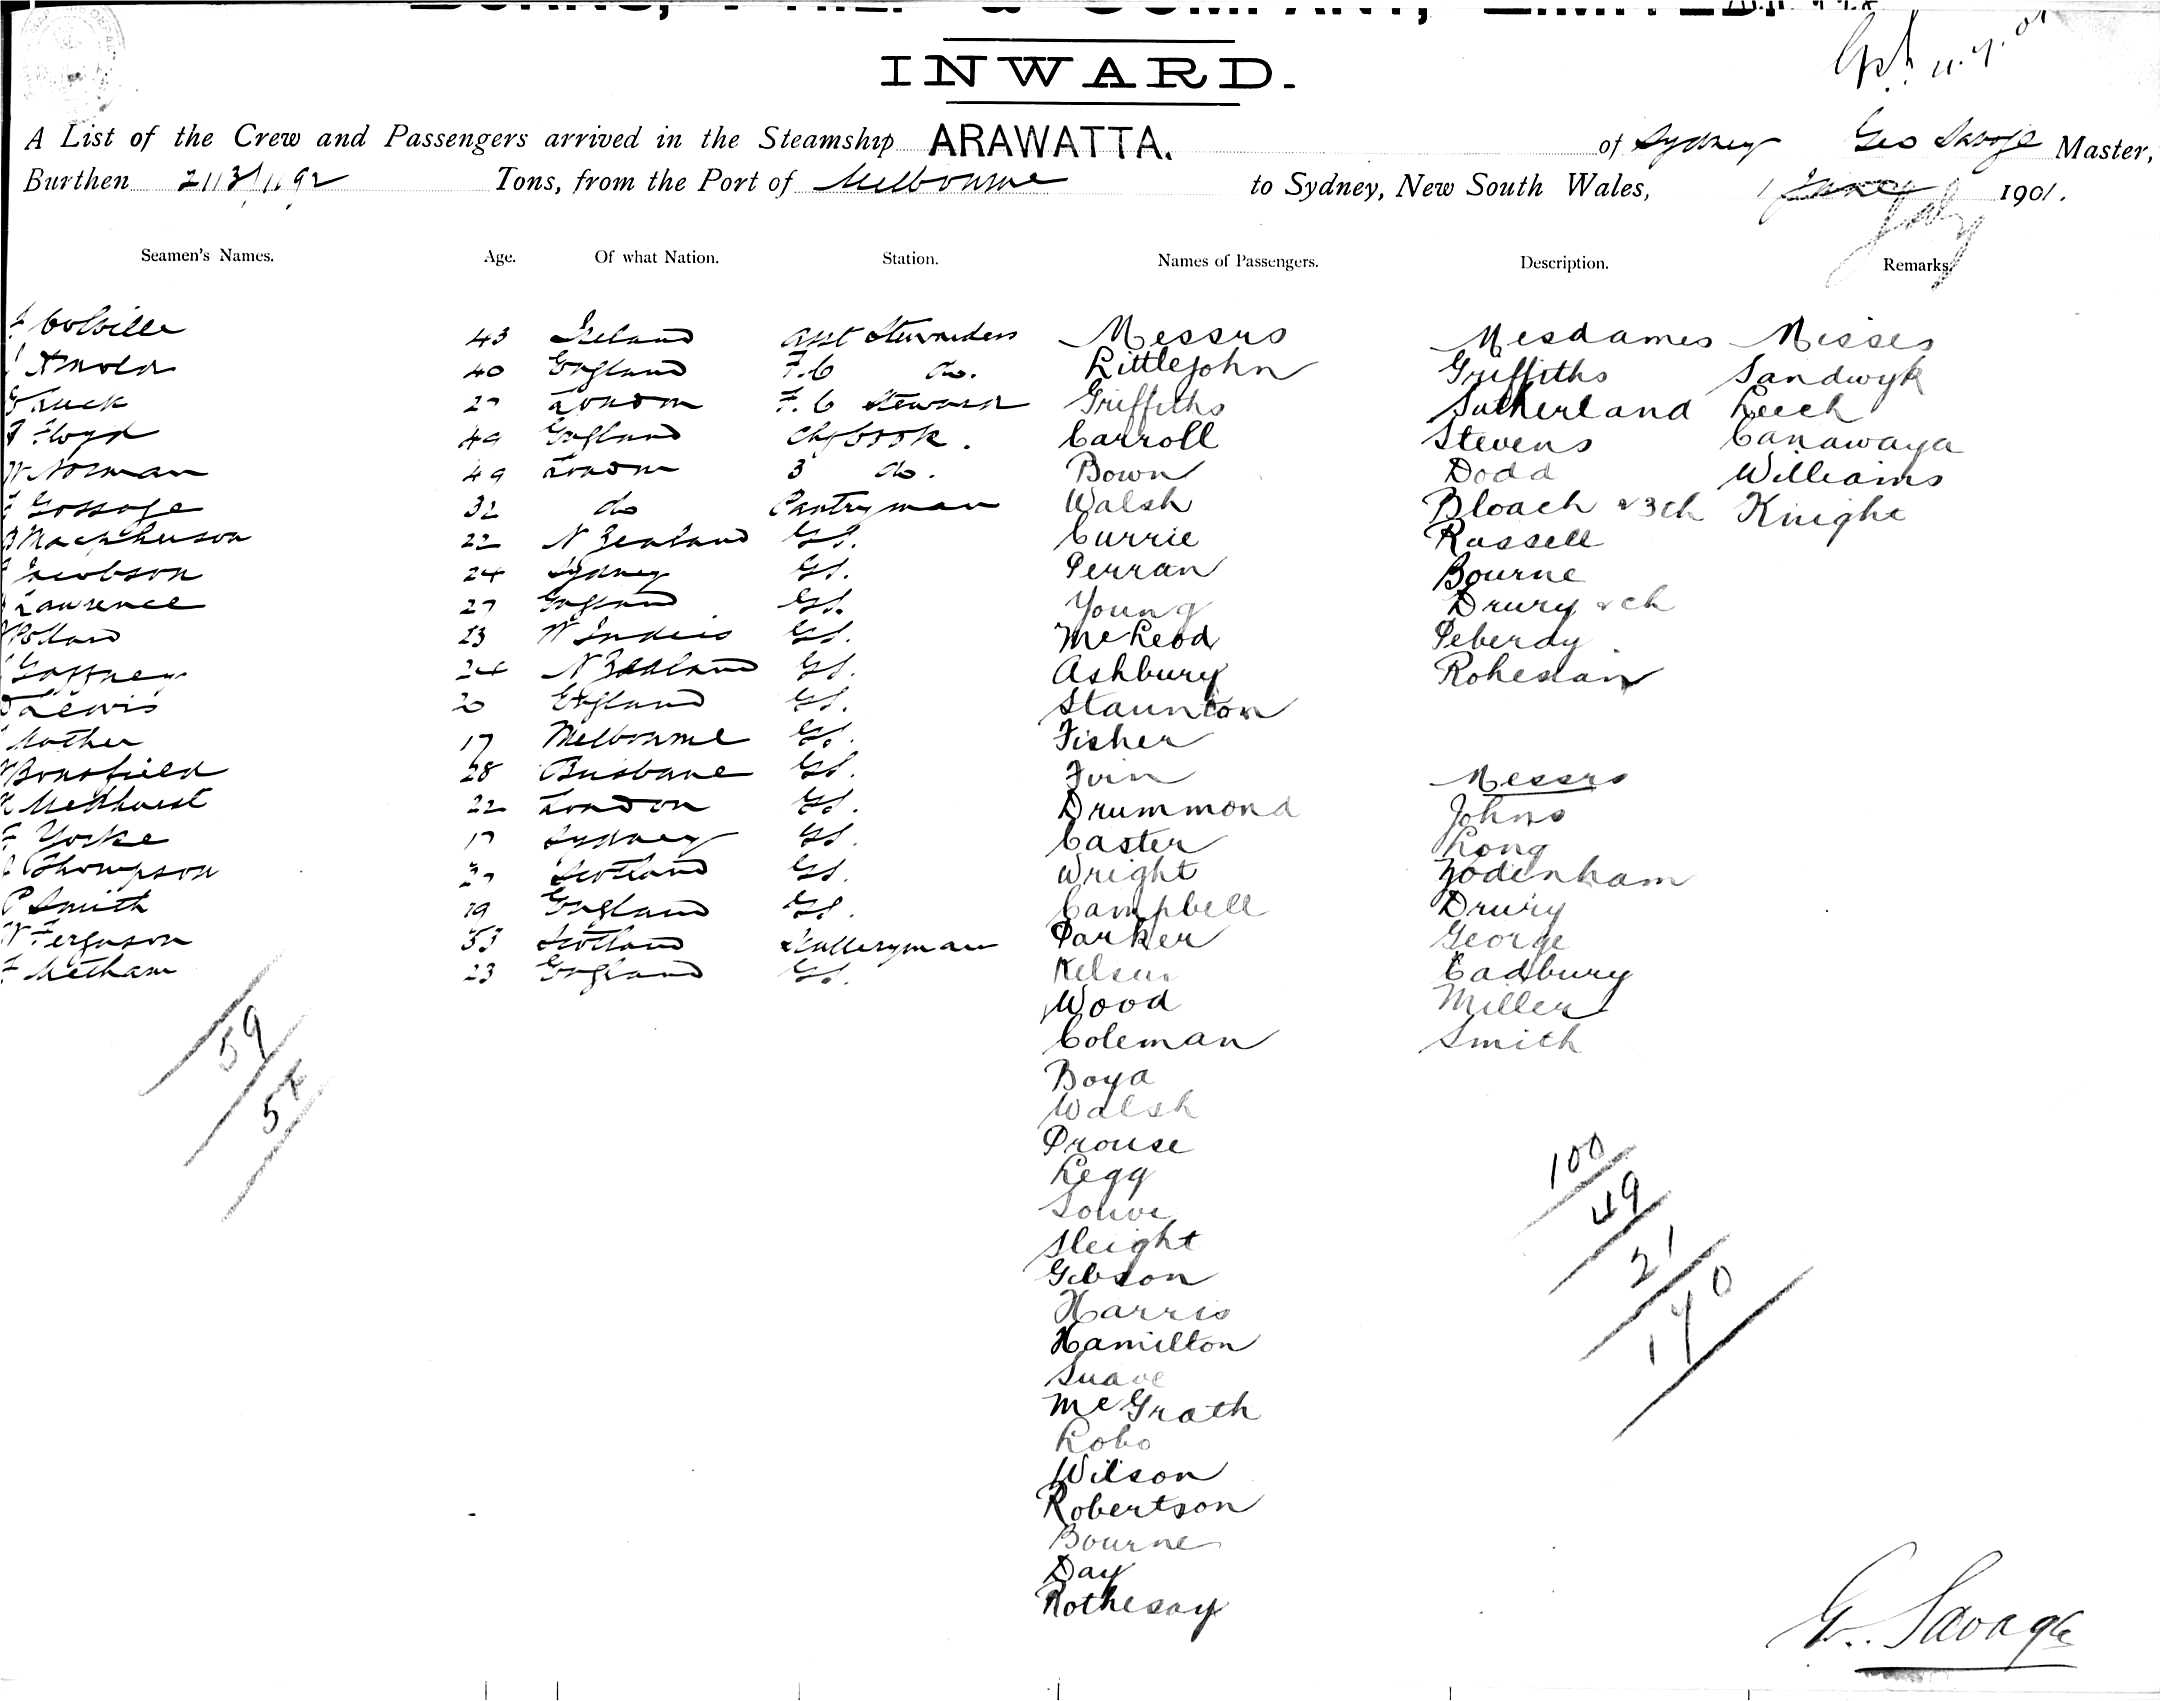 INWARD.
A List of the Crew and Passengers arrived in the Steamship ARAWATTA. of Sydney Geo Savage Master,
Burthen Tons, from the Port of Melbourne to Sydney, New South Wales, 1 July 1901.
Seamen's Names. Age. Of what Nation. Station. Names of Passengers. Description. Remarks.
Colville 43 Ireland Asst Stewardess Messrs Mesdames Misses
Arnold 40 England F.C do. Littlejohn Griffiths Sandwyk
27 London F.C Steward Griffiths Sutherland Leech
Floyd 49 England Carroll Stevens Canawaya
W Norman 49 London 3 do. Bown Dodd Williams
Gossage 32 do Pantryman Walsh Bloach & 3 ch Knight
MacPherson 22 N Zealand GS. Currie Russell
Jacobson 24 Sydney GS. Perran Bourne
Lawrence 27 England GS. Young Drury & ch
23 W Indies GS. McLeod Peberdy
Gaffney 24 N Zealand GS. Ashbury
Lewis 20 England GS. Staunton
Mother 17 Melbourne GS. Fisher
28 Brisbane GS. Messrs
22 London GS. Drummond Johns
F Yorke 17 Sydney GS. Caster Long
Thompson 27 Scotland GS. Wright Todenham
P Smith 19 England GS. Campbell Drury
W Ferguson 53 Scotland Sculleryman Parker George
F Metham 23 England GS. Cadbury
Wood Miller
Coleman Smith
59
54
Boya
Walsh
Prouse
Legg
Sleight
Gibson
Harris
Hamilton
McGrath
Lobo
Wilson
Robertson
Bourne
Day
Rothesay
100
49
21
170
G. Savage